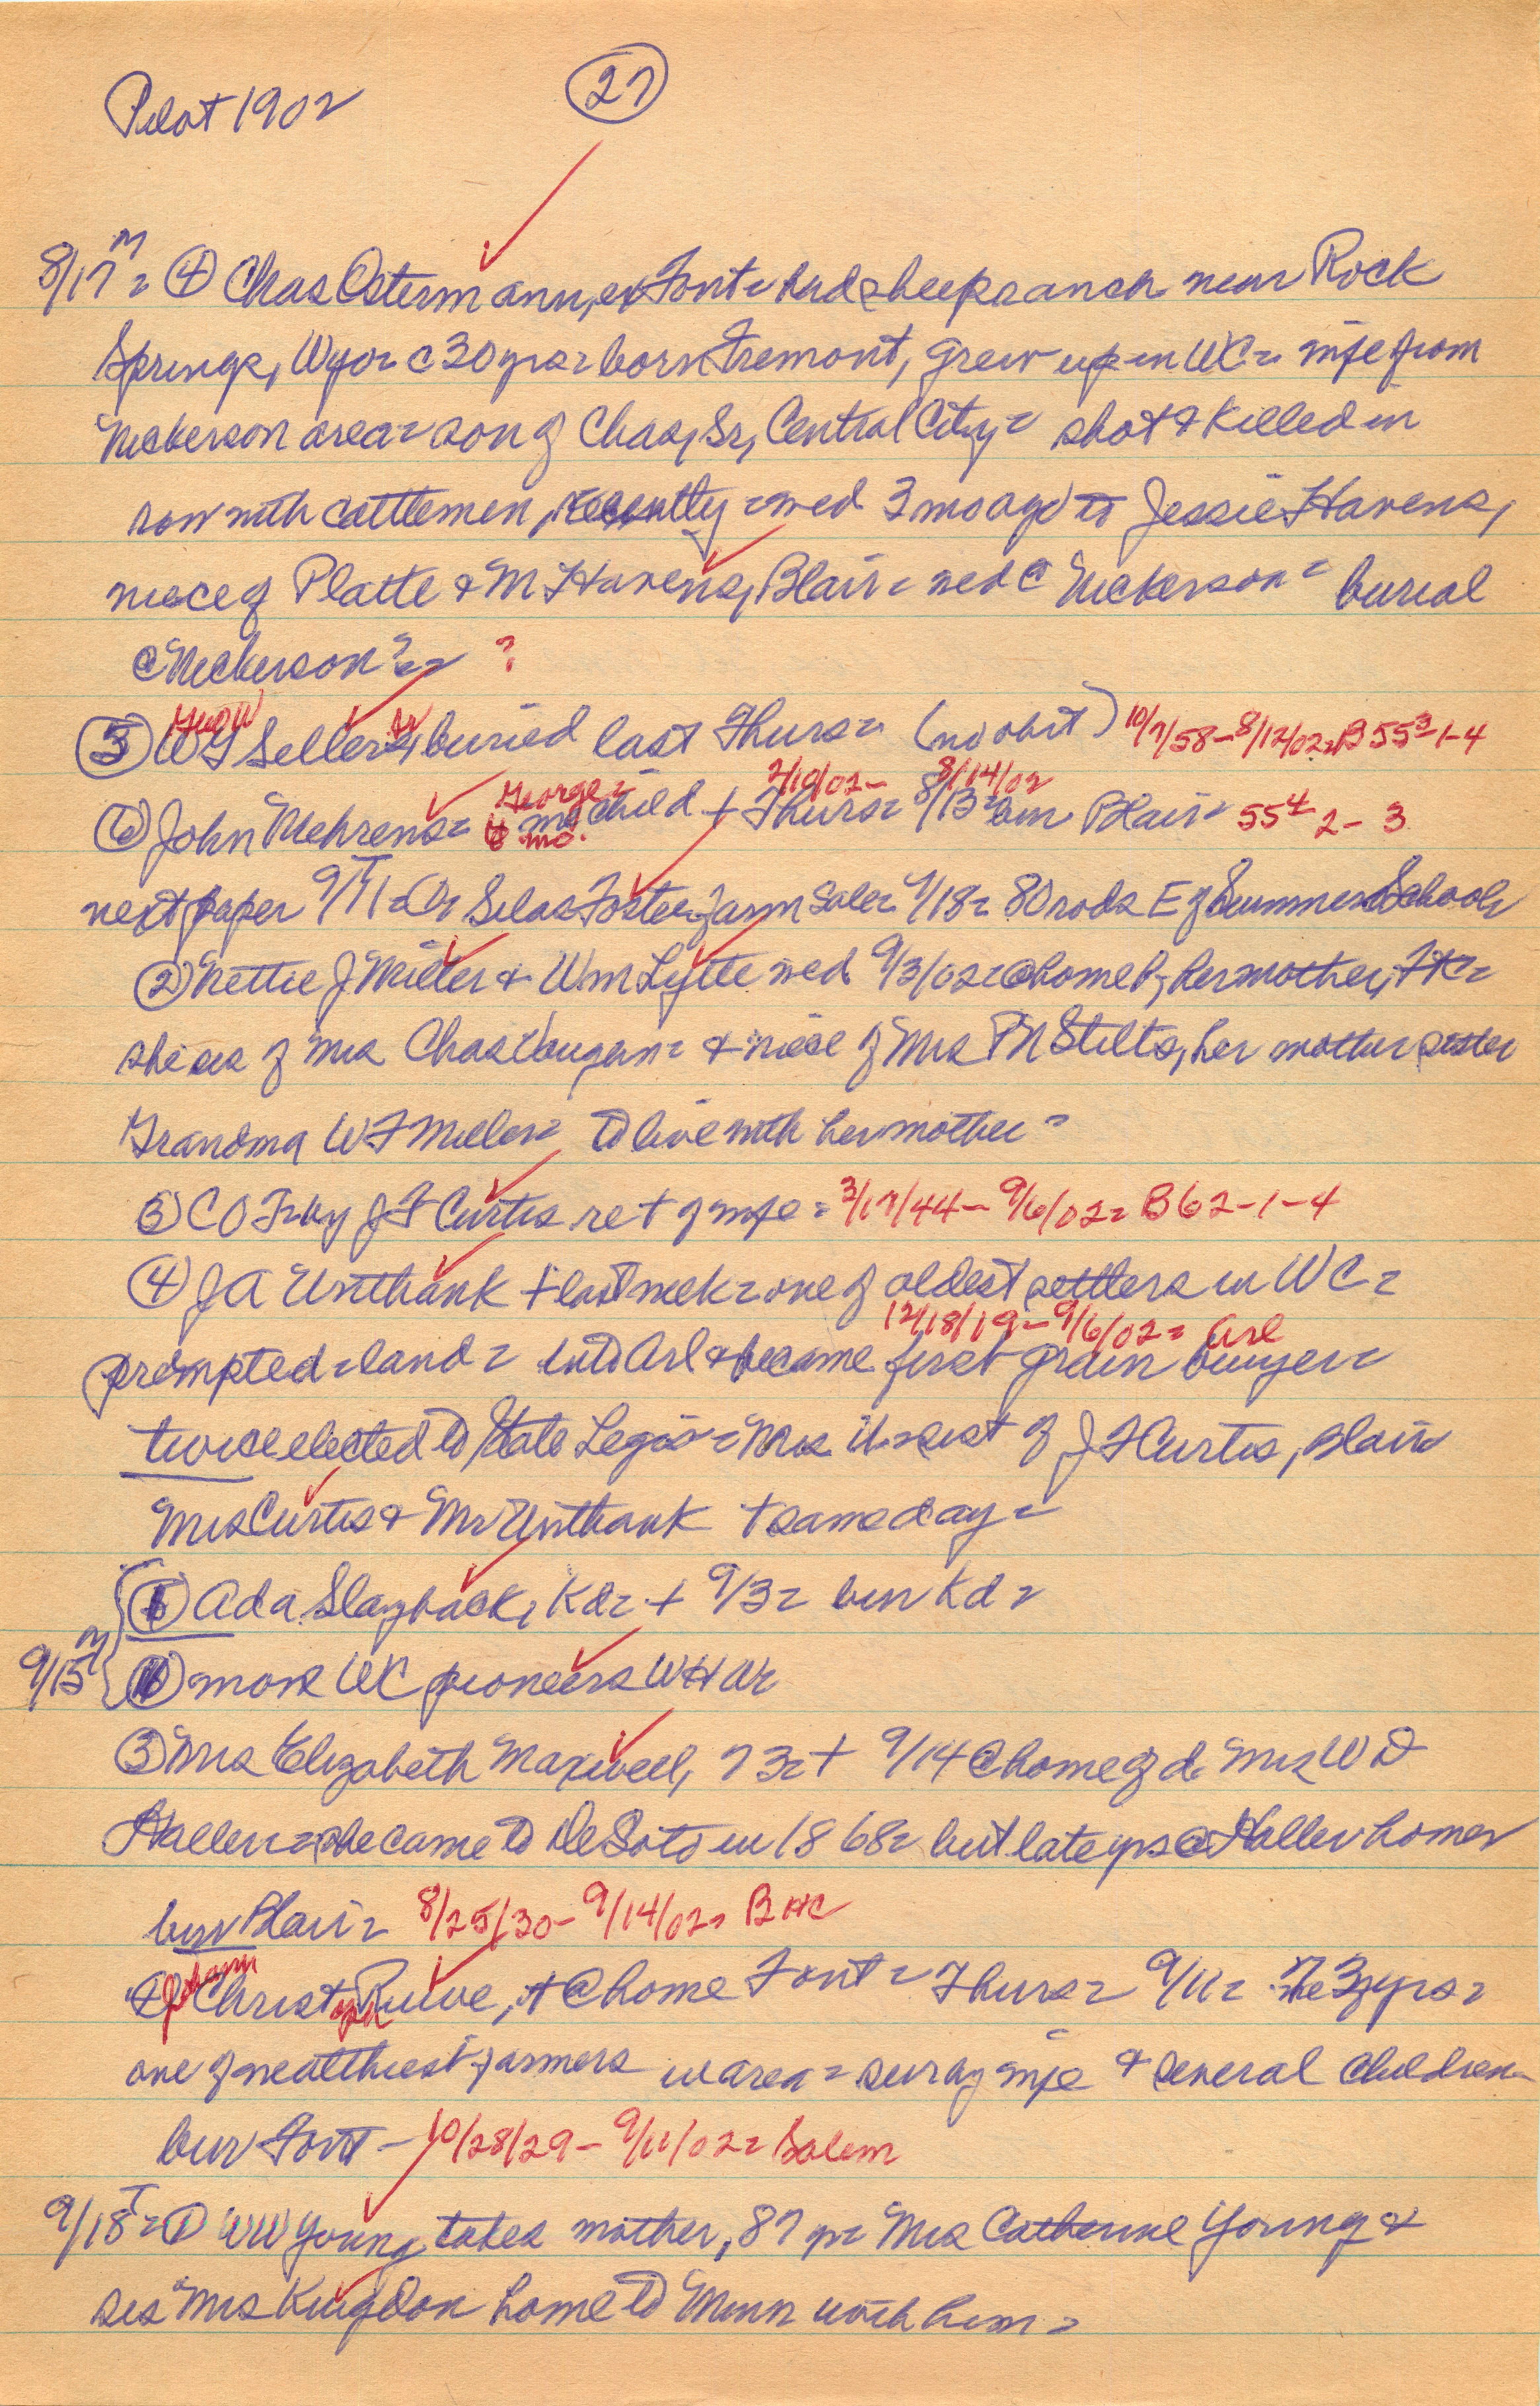 Pilot 1902
27
8/17 M = ④ Chas Ostermann, ex Font = had sheep ranch near Rock
Springs, Wyo = c 30 yrs = born Fremont, grew up in WC = wife from
Nickerson area = son of Chas, Sr, Central City = shot & killed in
row with cattlemen, recently = wed 3 mo ago to Jessie Havens,
niece of Platte & M Havens, Blair = wed @ Nickerson = burial
@ Nickerson? = ?
⑤ W G Sellers, buried last Thurs = (no obit) 10/7/58 – 8/12/02 = B 55 3 1-4
George = 2/10/02 – 8/14/02
⑥ John Mehrens = 6 mo. child + Thurs = 8/13 = bur Blair = 55 4 2 - 3
next paper 9/11 T = ① Silas Foster farm sale = 9/18 = 80 rods E of Summers School
② Nettie J Miller & Wm Lytle wed 9/3/02 = @ home of her mother, =
she sis of Mrs Chas = & niece of Mrs P N Stilts, her mother sister
Grandma W F Miller = to live with her mother =
③ C O T = by J F Curtis re + of wife = 3/17/44 – 9/6/02 = B 62-1-4
④ J A Unthank + last week = one of oldest settlers in WC =
12/18/19 – 9/6/02 = Arl
prempted = land = into Arl & became first grain buyer =
twice elected to State Legis = Mrs U = sist of J F Curtis, Blair
Mrs Curtis & Mr Unthank + same day =
⑥ Ada Slayback, Kd = + 9/3 = bur Kd =
9/15 M ① more WC pioneers W H Wr
③ Mrs Elizabeth Maxwell, 73 = + 9/14 @ home of d. Mrs W D
Haller = she came to De Soto in 1868 = but late yrs @ Haller home =
bur Blair = 8/25/30 – 9/14/02 = B HC
④ Johann Christoph Ruwe, + @ home Font = Thurs = 9/11 = 73 yrs =
one of wealthiest farmers in area = surv by wife & several children =
bur Font – 10/28/29 – 9/11/02 = Salem
9/18 T = ① W W Young takes mother, 87 yr = Mrs Catherine Young &
sis Mrs Kingdon home to Minn with him =